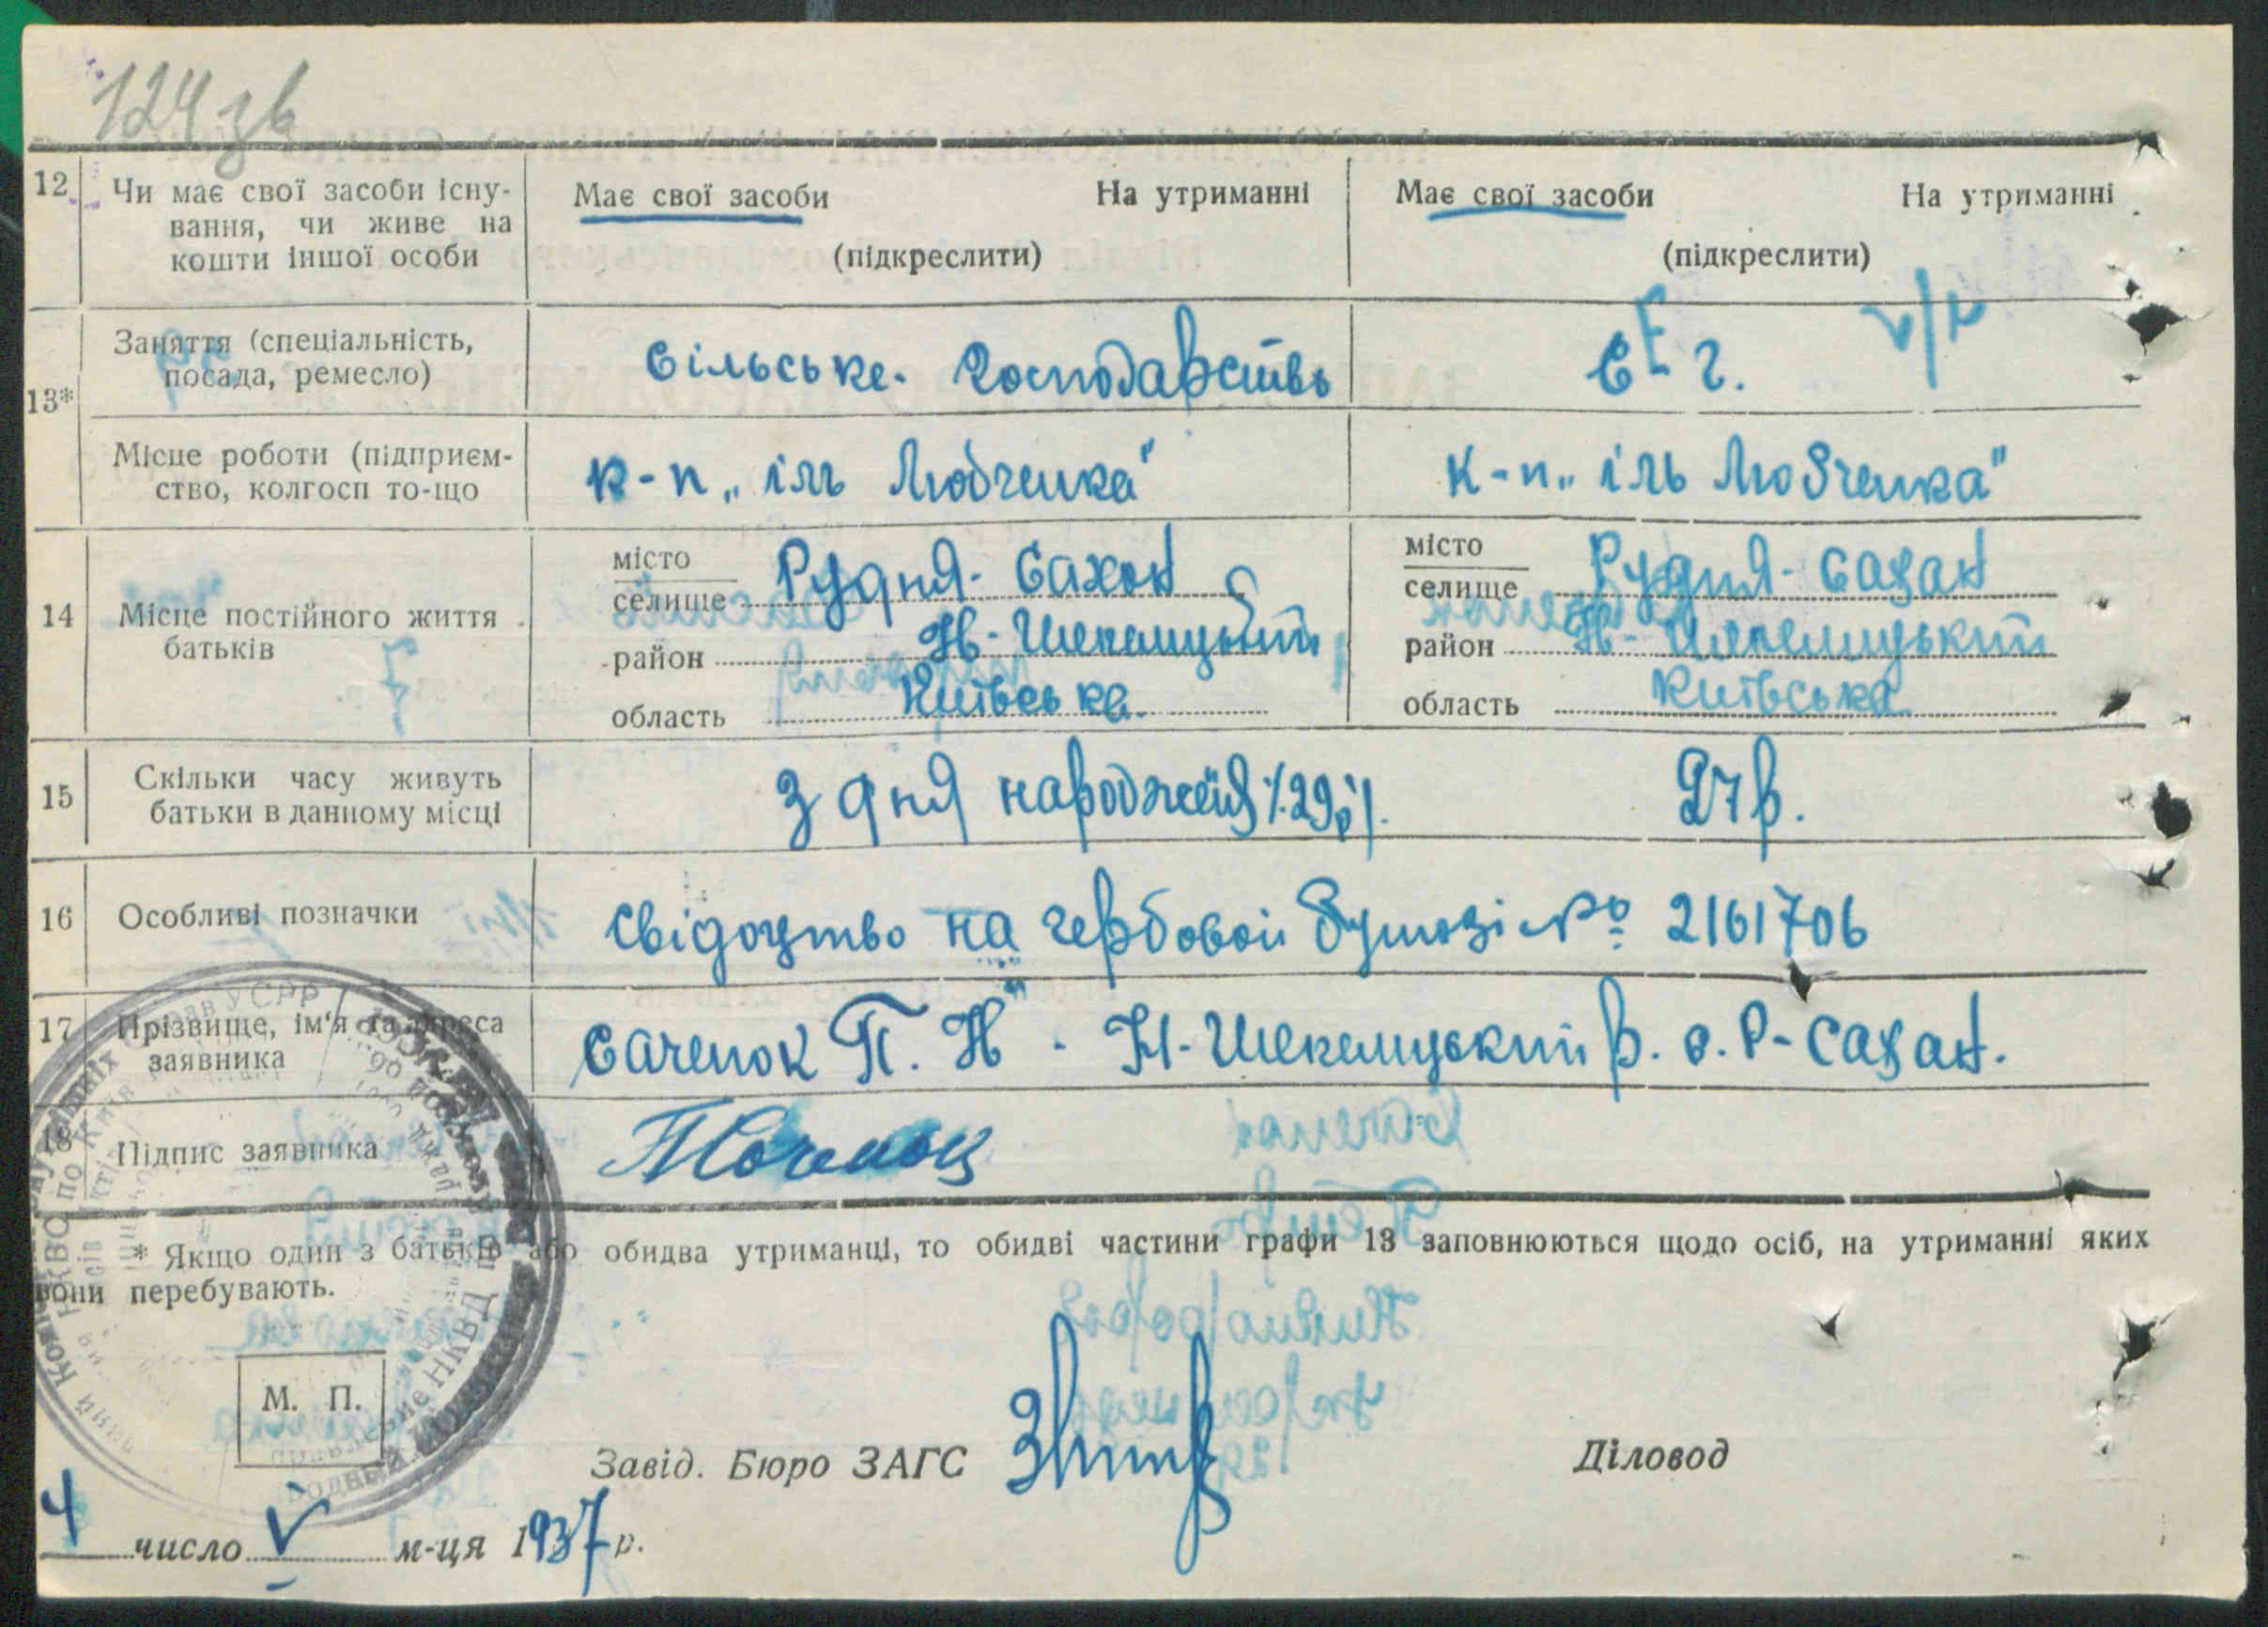 124 зв
12 Чи має свої засоби існу- Має свої засоби На утриманні Має свої засоби На утриманні
вання, чи живе на
кошти іншої особи (підкреслити) (підкреслити)
Заняття (спеціальність, Сільське. Господарство с г.
посада, ремесло)
13*
Місце роботи (підприєм- к-п „ ім Любченка" к-п „ ім Любченка"
ство, колгосп то-що
14 Місце постійного життя
батьків
місто Рудня- Сахон місто Рудня- Сазан
селище селище
район Н- Шепелицький район Н- Шепелицький
область Київська область Київська
15 Скільки часу живуть З дня народження 29р. 27р.
батьки в данному місці
16 Особливі позначки Свідоцтво на гербовой бумозі № 2161706
17 Прізвище, ім'я та адреса
заявника Саченок П. Н" - Н-Шепелицький р. с. Р- Сазан.
18 Підпис заявника
* Якщо один з батьків або обидва утриманці, то обидві частини графи 13 заповнюються щодо осіб, на утриманні яких
вони перебувають.
М. П.
Завід. Бюро ЗАГС Діловод
4 число V м-ця 1937 р.